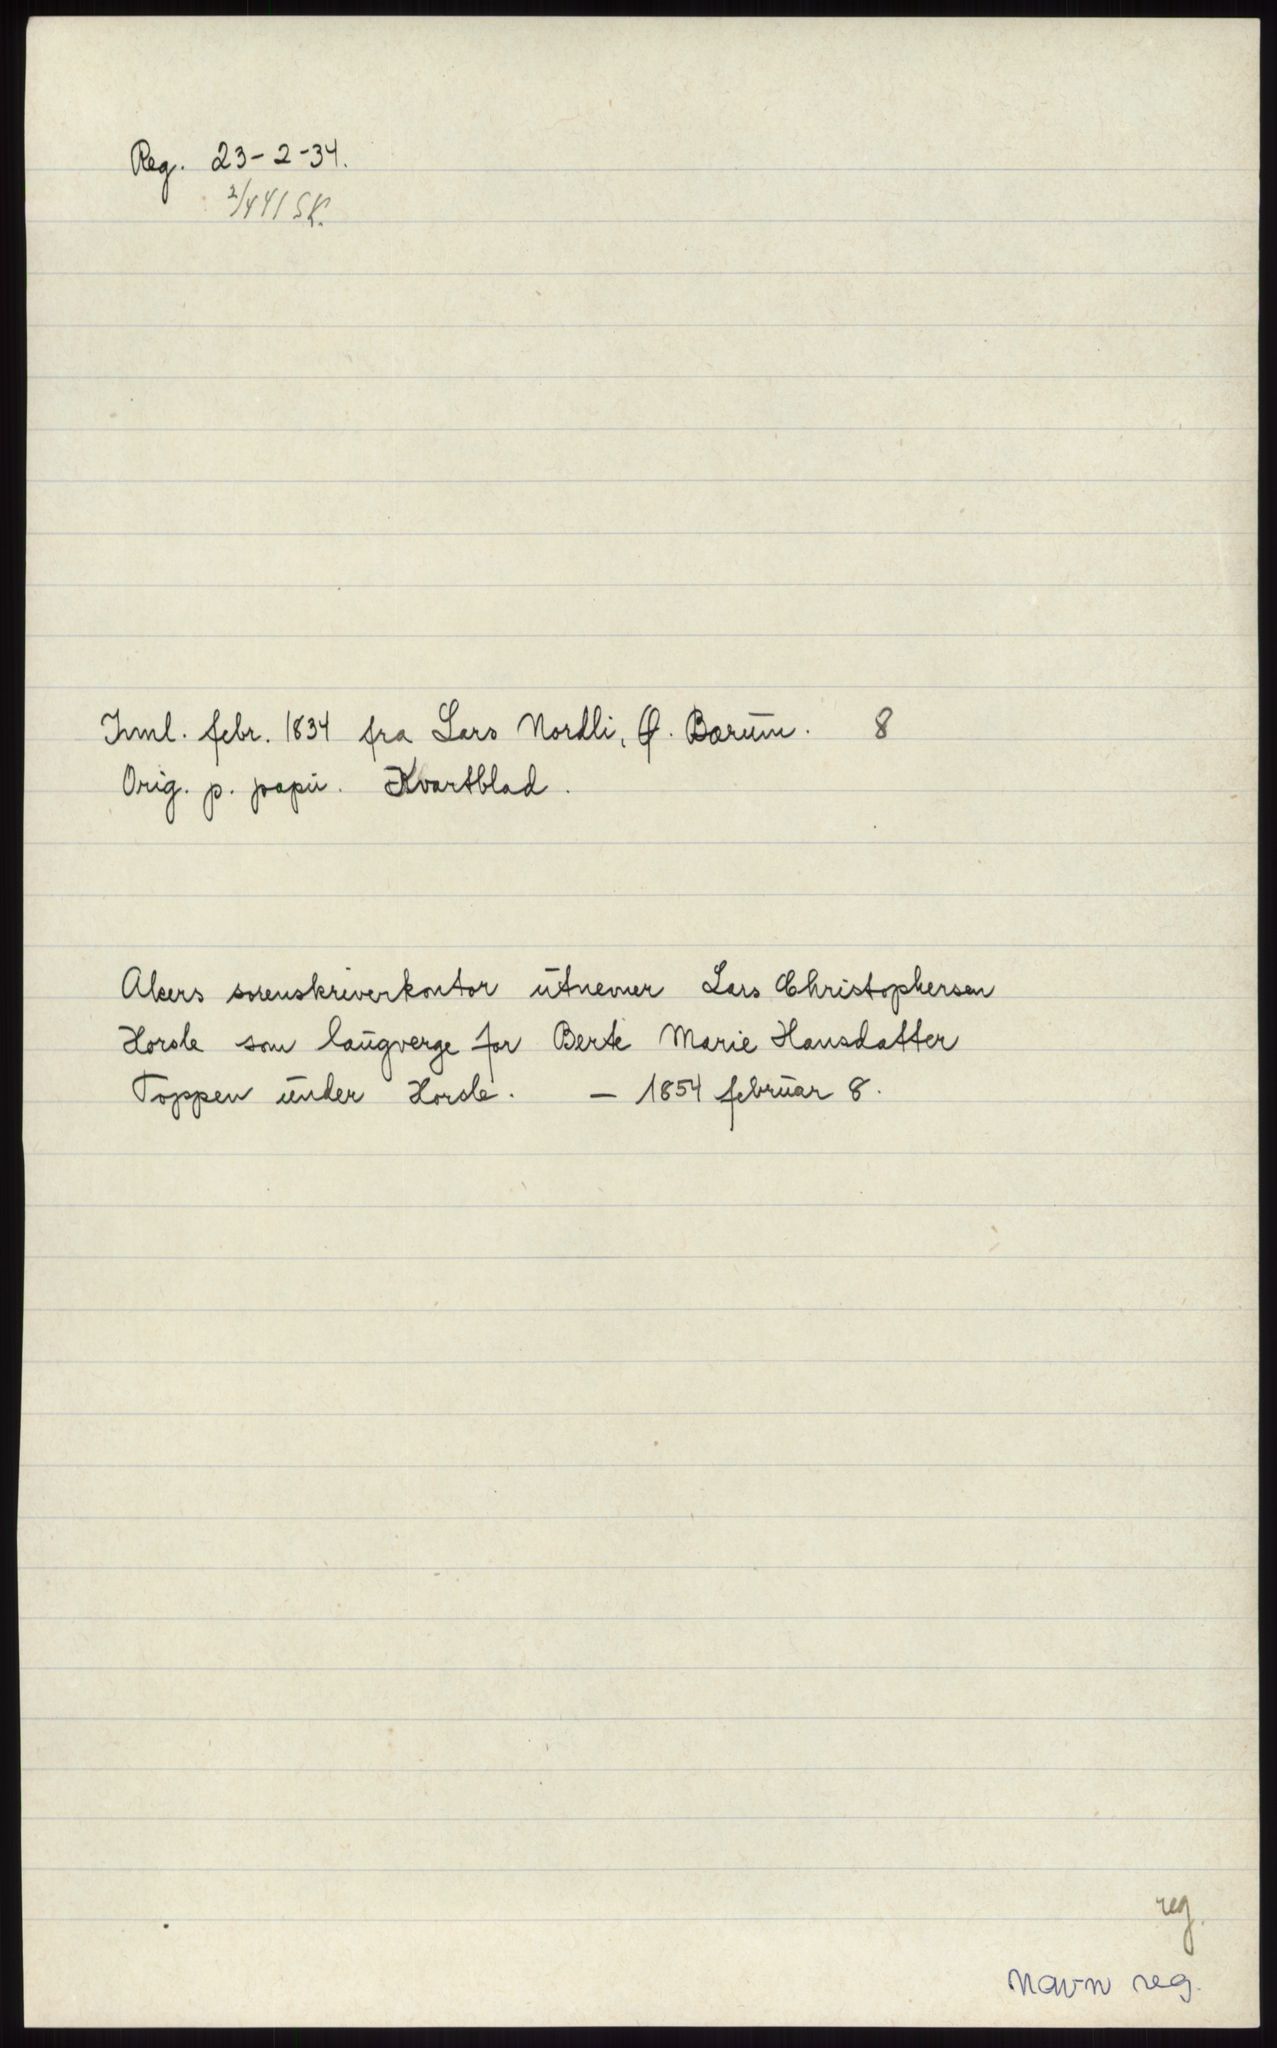 Reg. 23-2-34.
2/4 41 SK.
Innl. febr. 1834 fra Lars Nordli, Ø. Bærum. 8
Orig. p. papir. Kvartblad.
Akers sorenskriverkontor utnevner Lars Christophersen
Horsle som laugverge for Berte Marie Hansdatter
Toppen under Horsle. — 1854 februar 8.
reg.
Navn reg.